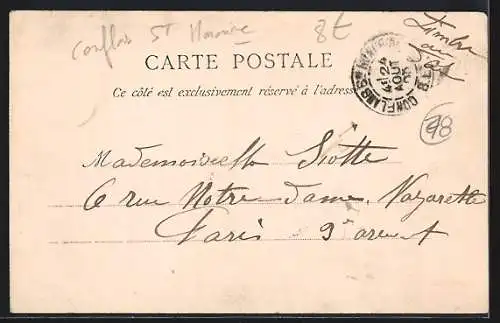 Conflans St Honorine
8£
Timbre
au
CARTE POSTALE
Ce côté est exclusivement réservé à l'adresse
CONFLANS-Ste-HONORINE
24
AOUT
98
Mademoiselle Liotte
6 rue Notre-dame Nazareth
Paris 3e arent